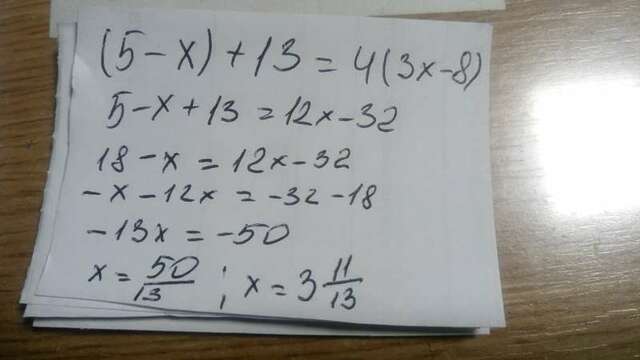 (5-x)+13=4(3x-8)
5-x+13=12x-32
18-x=12x-32
-x-12x=-32-18
-13x=-50
x=50/13; x=3 11/13